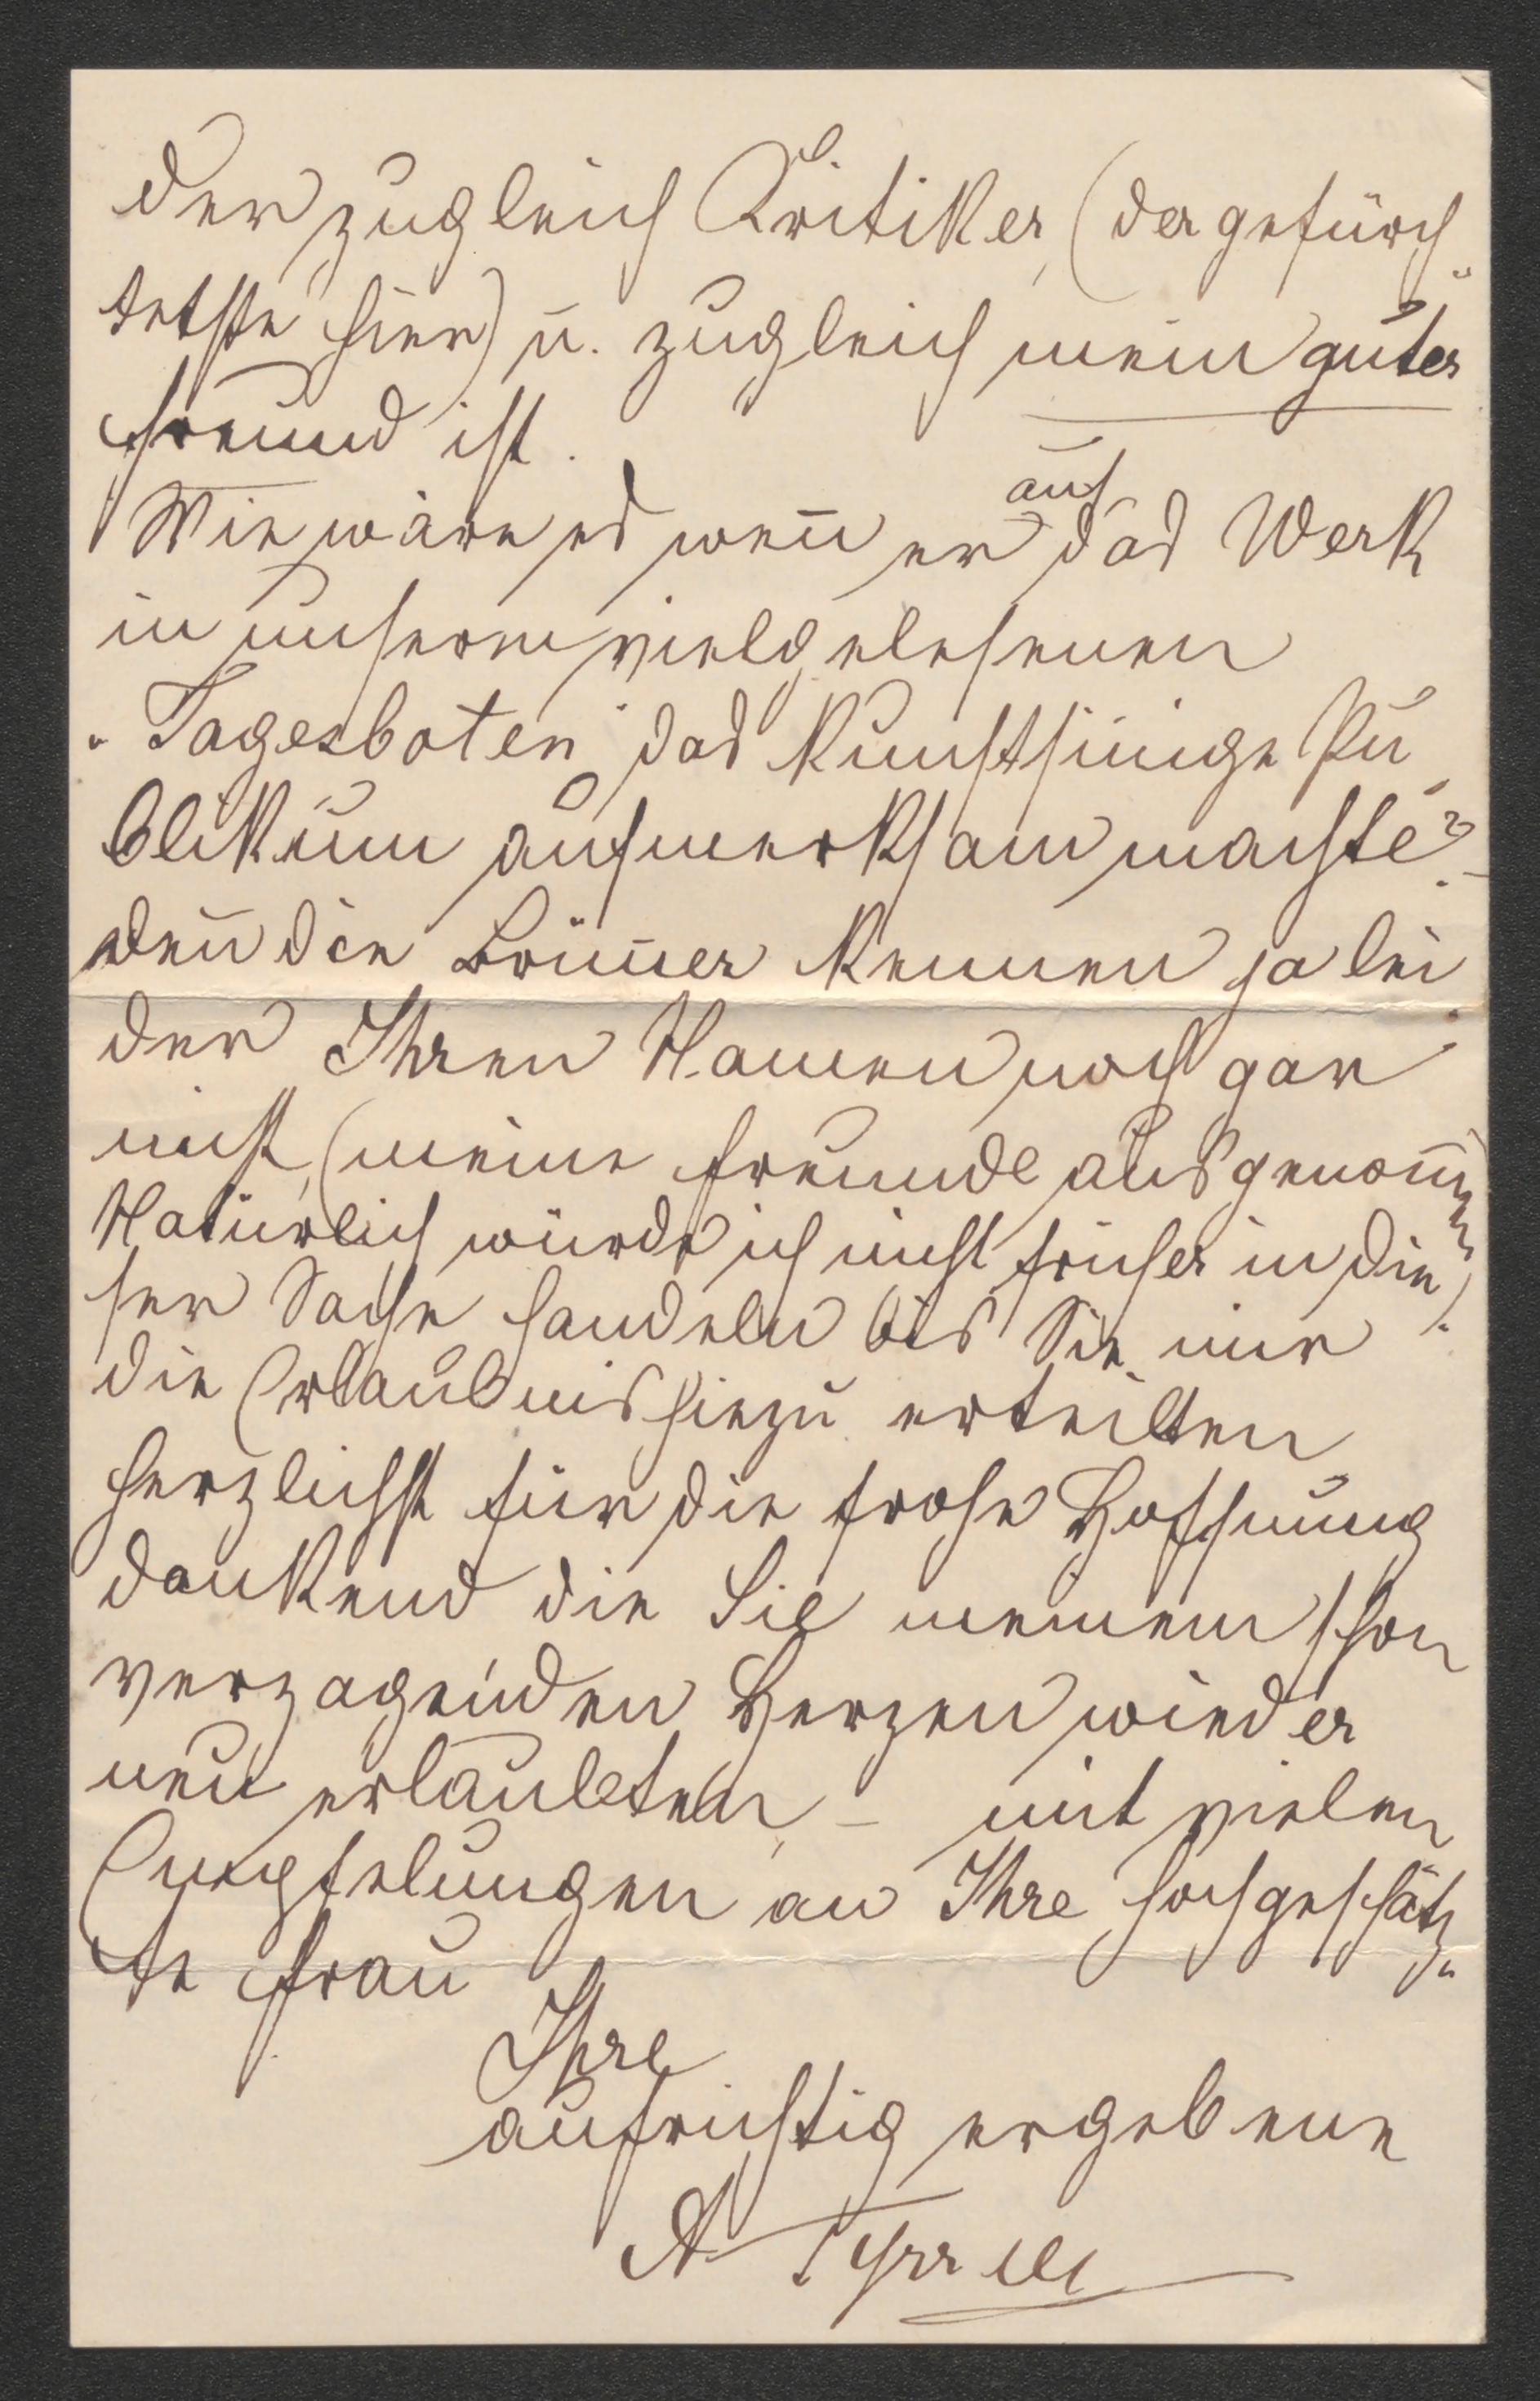 der zugleich Kritiker, (der gefürch-
tetste hier) u. zugleich mein guter
Freund ist.
Wie wäre es wenn er auf das Werk
in unserem vielgelesenen
"Tagesboten" das kunstsinige Pu-
blikum aufmerksam machte? –
denn die Brünner kennen ja lei-
der Ihren Namen noch gar
nicht, (meine Freunde ausgenommen).
Natürlich würde ich nicht früher in die-
ser Sache handeln bis Sie mir
die Erlaubnis hiezu erteilten
Herzlichst für die frohe Hoffnung
dankend die Sie meinem schon
verzagenden Herzen wieder
neu erlaubten, – mit vielen
Empfelungen an Ihre hochgeschätz-
te Frau
Ihre
aufrichtig ergebene
A Tyrrell